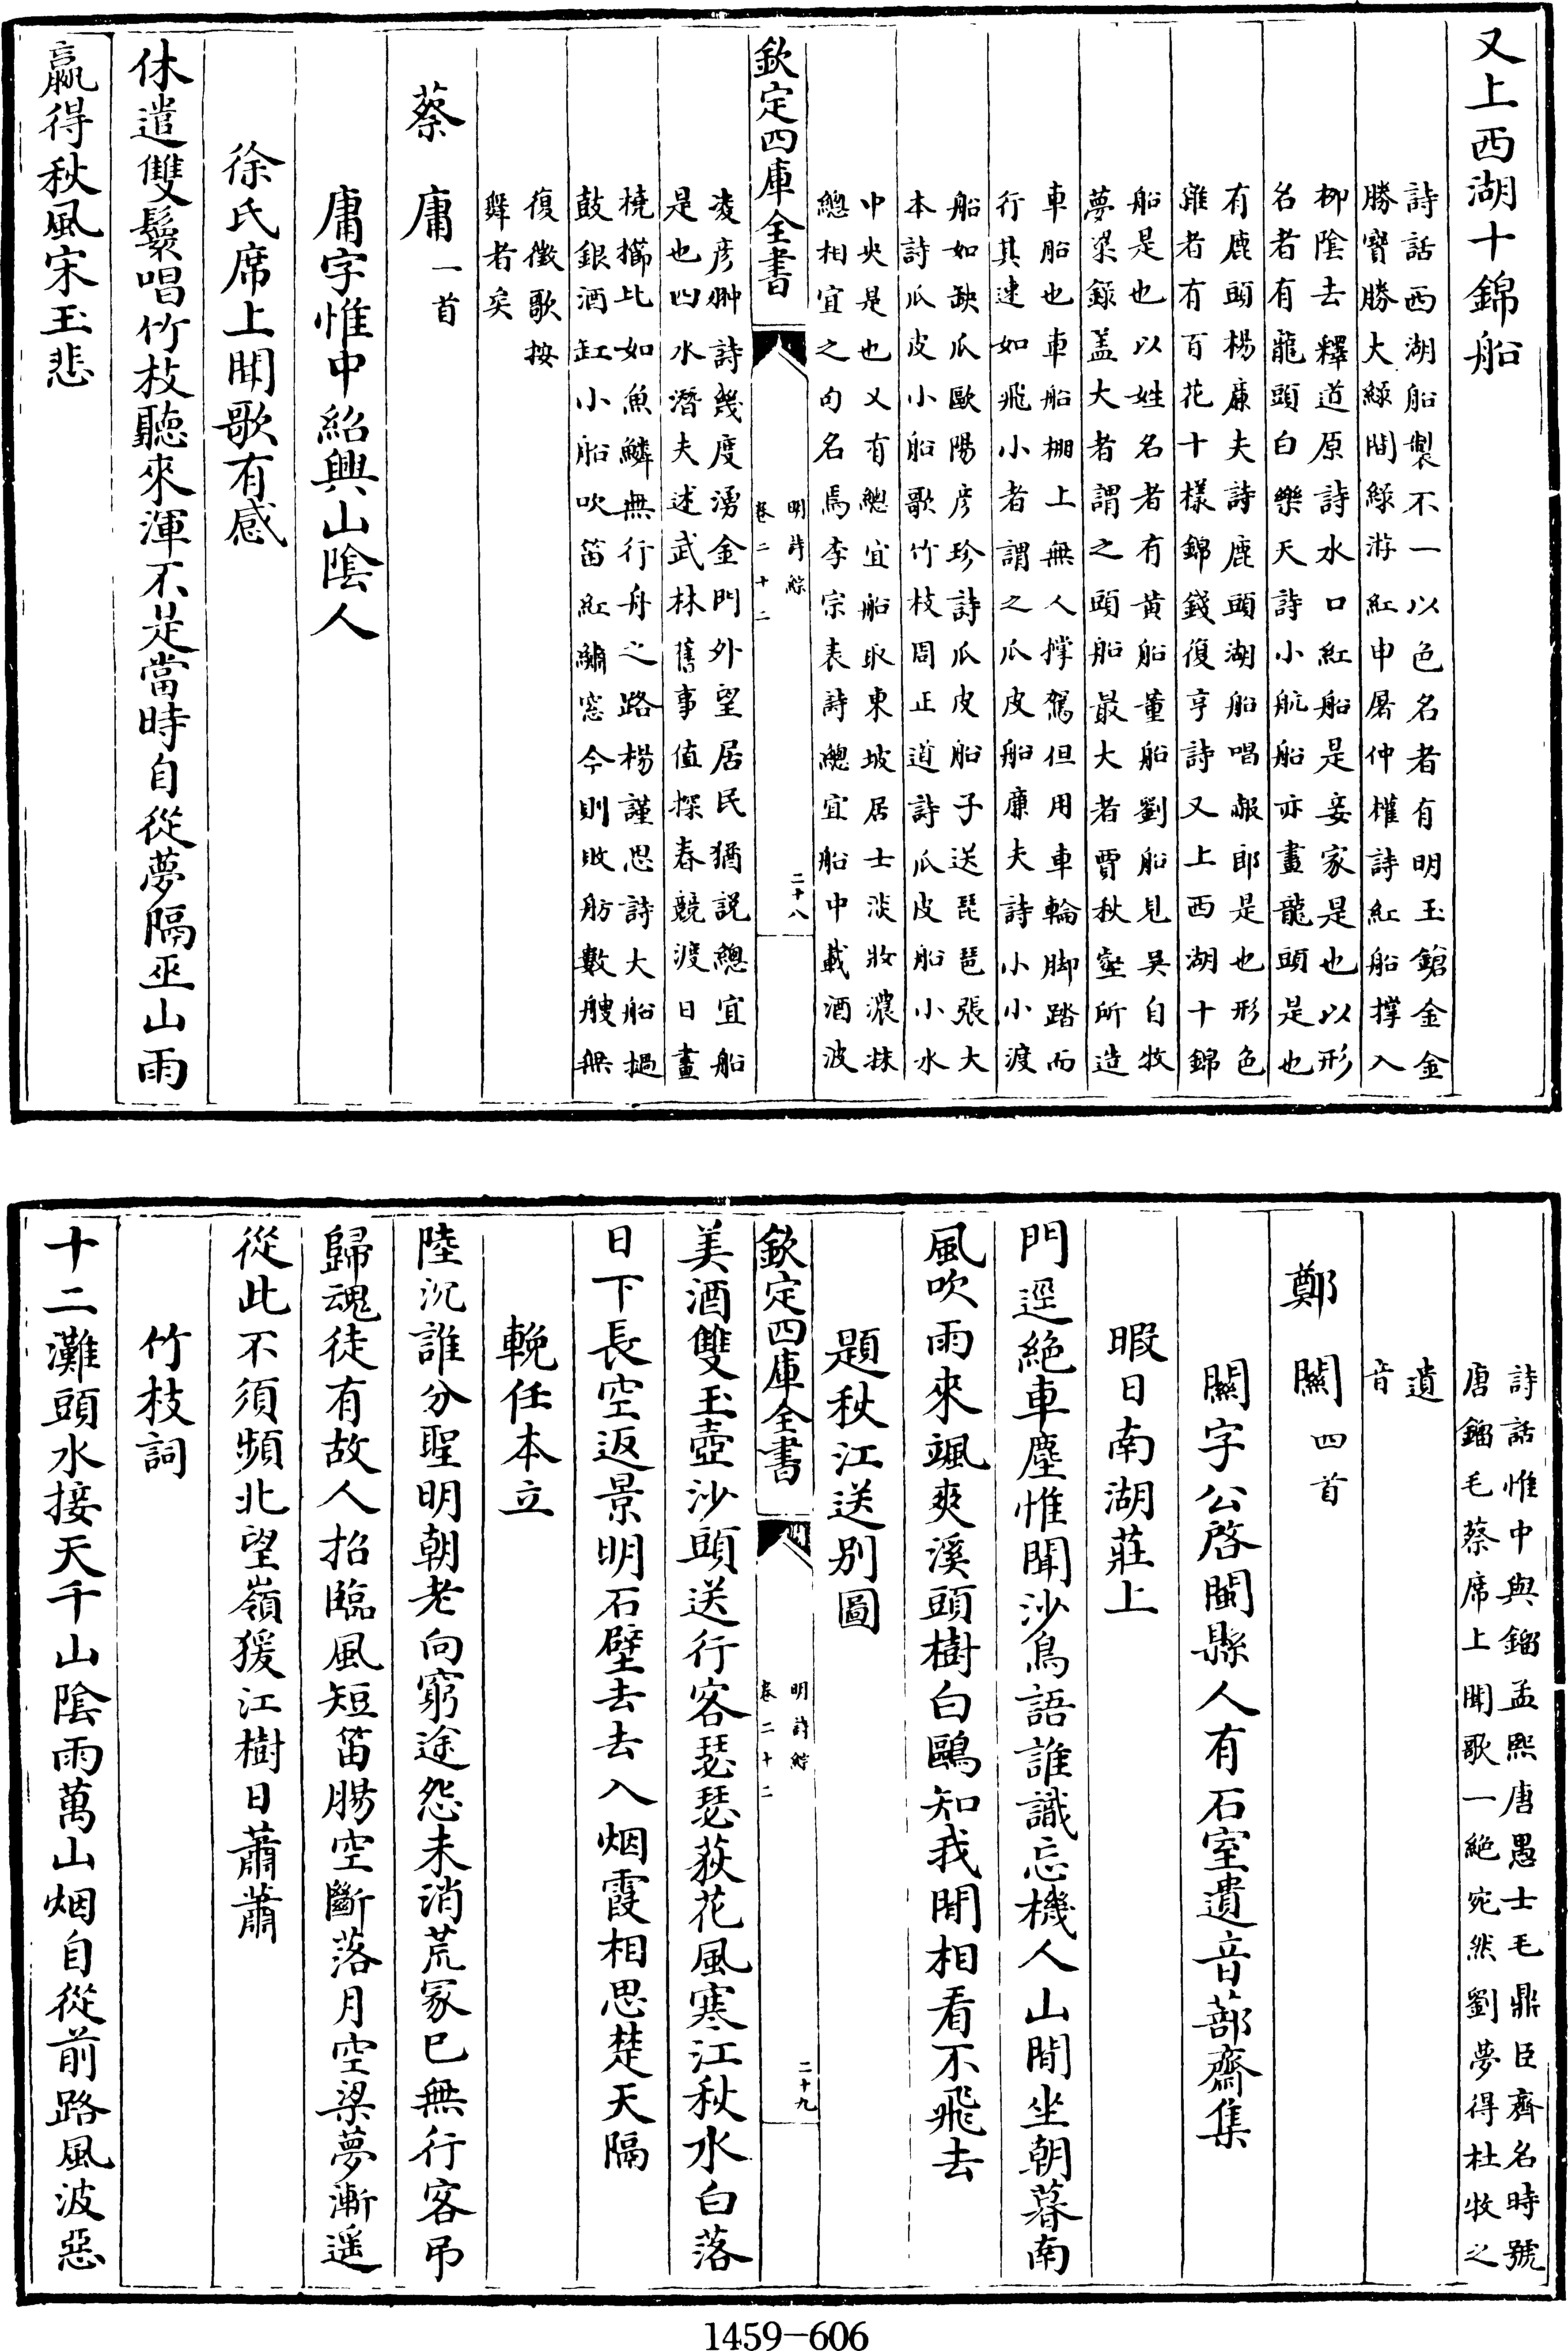 又上西湖十錦船
詩話西湖船製不一以色名者有明玉鎗金金
勝寳勝大綠間綠游紅申屠仲權詩紅船撑入
柳陰去釋道原詩水口紅船是妾家是也以形
名者有龍頭白樂天詩小航船亦畫龍頭是也
有鹿頭楊廉夫詩鹿頭湖船唱赧郎是也形色
雜者有百花十様錦錢復亨詩又上西湖十錦
船是也以姓名者有黄船董船劉船見吴自牧
夢梁錄盖大者謂之頭船最大者賈秋壑所造
車船也車船棚上無人撑駕但用車輪脚踏而
行其速如飛小者謂之瓜皮船廉夫詩小小渡
船如缺瓜歐陽彦珍詩瓜皮船子送琵琶張大
本詩瓜皮小船歌竹枝周正道詩瓜皮船小水
中央是也又有總宜船取東坡居士淡妝濃抹
總相宜之句名焉李宗表詩總宜船中載酒波
欽定四庫全書
明詩綜
卷二十二
二十八
凌彦翀詩幾度湧金門外望居民猶説總宜船
是也四水潛夫述武林舊事值探春競渡日畫
橈櫛比如魚鱗無行舟之路楊謹思詩大船撾
鼓銀酒缸小船吹笛紅繡窓今則敗舫數艘無
復徵歌按
舞者矣
蔡庸一首
庸字惟中紹興山隂人
徐氏席上聞歌有感
休遣雙鬟唱竹枝聽來渾不是當時自從夢隔巫山雨
贏得秋風宋玉悲
詩話惟中與鎦孟熙唐愚士毛鼎臣齊名時號
唐鎦毛蔡席上聞歌一絶宛然劉夢得杜牧之
遺
音
鄭關四首
關字公啓閩縣人有石室遺音蔀齋集
暇日南湖莊上
門逕絶車塵惟聞沙鳥語誰識忘機人山間坐朝暮南
風吹雨來颯爽溪頭樹白鷗知我閒相看不飛去
題秋江送别圖
欽定四庫全書
明詩綜
卷二十二
二十九
美酒雙玉壺沙頭送行客瑟瑟荻花風寒江秋水白落
日下長空返景明石壁去去入烟霞相思楚天隔
輓任本立
陸沉誰分聖明朝老向窮途怨未消荒冢已無行客弔
歸魂徒有故人招臨風短笛腸空斷落月空梁夢漸遥
從此不須頻北望嶺猨江樹日蕭蕭
竹枝詞
十二灘頭水接天千山隂雨萬山烟自從前路風波惡
1459-606